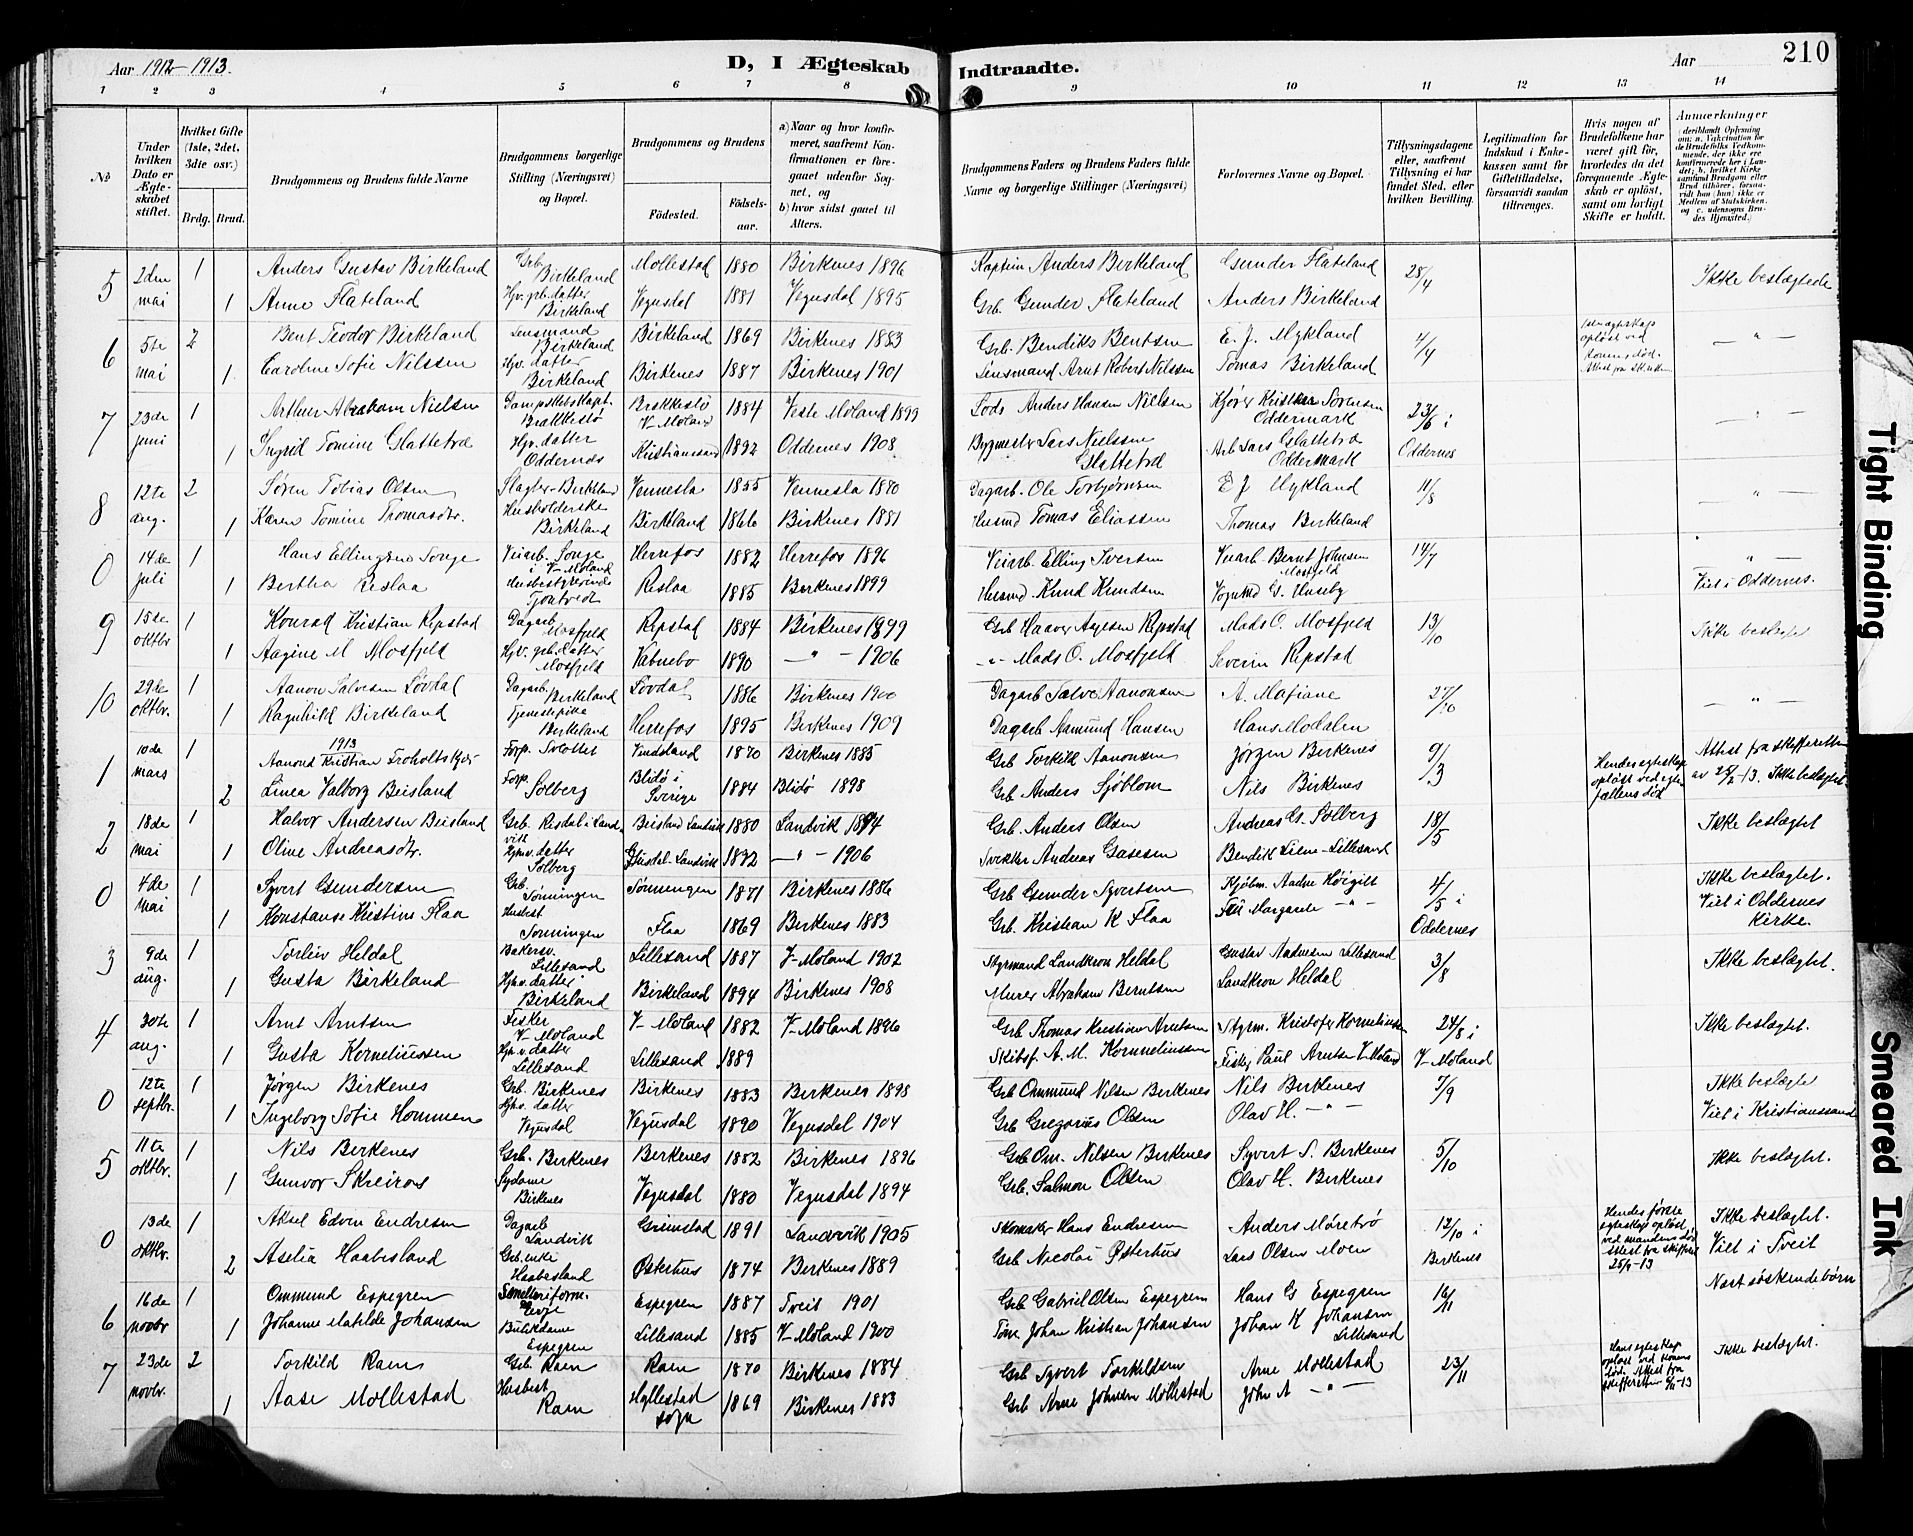 Aar 1912-1913.
D, I Ægteskab Indtraadte.
Aar
210
1 2 3 4 5 6 7 8 9 10 11 12 13 14
No
Under hvilken Dato er Ægteskabet stiftet.
Hvilket Gifte (1ste, 2det, 3die osv.)
Brdg. Brud.
Brudgommens og Brudens fulde Navne
Brudgommens borgerlige Stilling (Næringsvei) og Bopæl.
Brudgommens og Brudens
Födested.
Födselsaar.
a) Naar og hvor konfirmeret, saafremt Konfirmationen er foregaaet udenfor Sognet, og
b) hvor sidst gaaet til Alters.
Brudgommens Faders og Brudens Faders fulde Navne og borgerlige Stillinger (Næringsvei)
Forlovernes Navne og Bopæl.
Tillysningsdagene eller, saafremt Tillysning ei har fundet Sted, efter hvilken Bevilling.
Legitimation for Indskud i Enkekassen samt for Giftetilladelse, forsaavidt saadan tiltrænges.
Hvis nogen af Brudefolkene har været gift før, hvorledes da det foregaaende Ægteskab er opløst, samt om lovligt Skifte er holdt.
Anmærkninger
5 2den mai 1 Anders Gustav Birkeland Grb. Birkeland Mollestad 1880 Birkenes 1896 Kaptein Anders Birkeland Gunder Flateland 28/4 Ikke beslægtede
1 Anne Flateland Hjv. grb. datter Birkeland Vegusdal 1881 Vegusdal 1895 Grb. Gunder Flateland Anders Birkeland
6 5te mai 2 Bent Teodor Birkeland Lensmand Birkeland Birkeland 1869 Birkenes 1883 Grb. Bendiks Bentsen E. J. Mykland 4/4 — " —
1 Caroline Sofie Nilssen Hjv. datter Birkeland Birkenes 1887 Birkenes 1901 Lensmand Arnt Robert Nilssen Tomas Birkeland
7 23de juni 1 Arthur Abraham Nielsen Brækkestø Brekkestø V-Moland 1884 Vestre Moland 1899 Lods Anders Hansen Nielsen Kjører Kristen Sørensen Oddermark 23/6 i Oddernes — " —
1 Ingrid Tomine Glattetræ Hjv. datter Oddernes Kristianssand 1892 Oddernes 1908 Bygmester Lars Nielssen Glattetræ Arb. Lars Glattetræ Oddermark
8 12te aug. 2 Søren Tobias Olsen Slagter-Birkeland Vennesla 1855 Vennesla 1870 Dagarb. Ole Torbjørnsen E J Mykland 11/8 — " —
1 Karen Tomine Tromasdtr. Husholderske Birkeland Birkeland 1866 Birkenes 1881 Husmd Tomas Eliassen Thomas Birkeland
0 14de juli 1 Hans Ellingsen Songe Veiarb. Songe i V-Moland Herrefos 1882 Herrefos 1896 Veiarb. Elling Iversen Veiarb Bernt Johnsen Mosfjeld 14/7 — " —
1 Bertha Rislaa Husbestyrerinde Tjomtvedt Rislaa 1885 Birkenes 1899 Husmd Knud Knudsen Vognmd G. Huseby Viet i Oddernes.
9 15de oktbr 1 Konrad Kristian Ripstad Dagarb Mosfjeld Ripstad 1884 Birkenes 1899 Grb Haaver Aagesen Ripstad Mads O. Mosfjeld 13/10 Ikke beslægtet
1 Aagine M Mosfjeld Hjv. grb. datter Mosfjeld Vabnebo 1890 — " — 1906 — " — Mads O. Mosfjeld Severin Ripstad
10 29de oktbr. 1 Aanon Salvesen Løvdal Dagarb Birkeland Løvdal 1886 Birkenes 1900 Dagarb Salve Aanonsen A. Mafiane 27/10 — " —
1 Ragnhild Birkeland Tjenestepike Birkeland Herrefos 1895 Birkenes 1909 Dagarb Asmund Hansen Hans Modalen
1913
1 10de mars 1 Aanond Kristian Froholtskjær Forp. Slottet Vindsland 1870 Birkenes 1885 Grb Torkild Aanonsen Jørgen Birkenes 9/3 Hendes egteskap opløst ved egtefællens død Attest fra skifteretten av 25/2-13. Ikke beslægtet
2 Linea Valborg Beisland Forp. Solberg Blidø i Sverige 1884 Blidø 1898 Grb Anders Sjöblom Nils Birkenes
2 18de mai 1 Halvor Andersen Beisland Grb. Risdal i Landvik Beisland Landvik 1880 Landvik 1894 Grb. Anders Olsen Andreas G. Solberg 18/5 Ikke beslægtet
1 Oline Andreasdtr. Hjmv. datter Solberg Landvik — " — 1906 Andreas Bendik Liene-Lillesand
0 4de mai 1 Syvert Gundersen Grb. Tønningen Tønningen 1871 Birkenes 1886 Grb Gunder Syvertsen Kjøbm. Aadne Høigilt 4/5 i Oddernes Ikke beslægtet.
1 Konstanse Kristine Flaa Husbest Tønningen Flaa 1869 Birkenes 1883 Grb. Kristian K Flaa Margarete — " — Viet i Oddernes Kirke.
3 9de aug. 1 Torleiv Heldal Bakersv. Lillesand Lillesand 1887 V-Moland 1902 Styrmand Landkron Heldal Gustav Aadnesen Lillesand 3/8 Ikke beslægtet.
1 Gusta Birkeland Hjmv. datter Birkeland Birkeland 1894 Birkenes 1908 Murer Abraham Berntsen Landkron Heldal
4 30te aug. 1 Arnt Arntsen Fisker V-Moland V-Moland 1882 V-Moland 1896 Grb Thomas Kristian Arntsen Styrm. Kristofer Korneliussen 24/8 i V-Moland Ikke beslægtet.
1 Gusta Korneliussen Hjm. v. datter Lillesand Lillesand 1889 Skibsf. A. M. Kornneliussen Fisker Paul Arntsen V.Moland
0 12te septbr. 1 Jørgen Birkenes Grb. Birkenes Birkenes 1883 Birkenes 1898 Grb Ommund Nilsen Birkenes Nils Birkenes 7/9 Ikke beslægtet
1 Ingeborg Sofie Hommen Hjmv. datter Vegusdal Vegusdal 1890 Vegusdal 1904 Grb Gregorius Olsen Olav H. — " — Viet i Kristianssand
5 11te oktbr. 1 Nils Birkenes Grb. Birkenes Birkenes 1882 Birkenes 1896 Grb Om. Nilsen Birkenes Syvert S. Birkenes 5/10 Ikke beslægtet.
1 Gunvor Skreiros Sydame Birkenes Vegusdal 1880 Vegusdal 1894 Grb. Salmon Olsen Olav H. Birkenes
0 13de oktbr. 1 Aksel Edvin Endresen Dagarb Landvik Grimstad 1891 Landvik 1905 Skomaker Hans Endresen Anders Møretrø 12/10 i Birkenes Hendes første egteskap opløst ved mandens død Attest fra skifteret 25/9-13 Ikke beslægtet.
2 Aselia Haabesland Grb. enke Haabesland Østerhus 1874 Birkenes 1889 Grb Nicolai Østerhus Lars Olsen Moen Viet i Tveit
6 16de novbr 1 Ommund Espegren Evje Espegren 1887 Tveit 1901 Grb Gabriel Olsen Espegren Hans G Espegren 16/11 Næst søskendebørn
1 Johanne Matilde Johansen Butikdame Espegren Lillesand 1885 V-Moland 1900 Johan Kristian Johansen Johan K Johansen Lillesand
7 23de novbr. 2 Torkild Ram Grb Ram Ram 1870 Birkenes 1884 Grb Syvert Torkildsen Arne Mollestad 23/11 Hans egteskap opløst ved konens død. Attest fra skifteretten 6/11-13 Ikke beslægtet.
1 Aase Mollestad Husbest Ram Mollestad sogn 1869 Birkenes 1883 Grb Arne Johnsen Mollestad John A — " —
Tight Binding
Smeared Ink